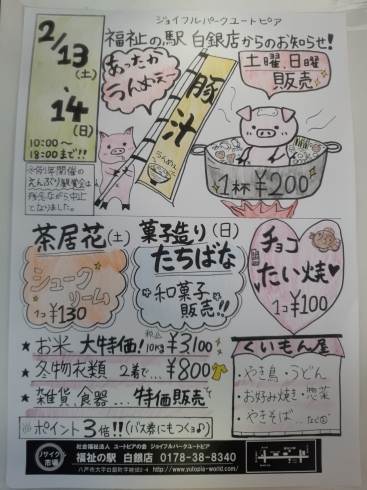 ジョイフルパークユートピア
福祉の駅 白銀店からのお知らせ!
2/13(土)
.14(日)
10:00〜
18:00まで!!
※例年開催の
えんぶり観覧会は
残念ながら中止
となりました。
あったか
うんめぇ〜
豚汁
うんめぇ
土曜、日曜
販売
1杯¥200
茶居花(土)
シューク
リーム
1コ¥130
菓子造り(日)
たちばな
和菓子
販売!!
チョコ
たい焼
1コ¥100
★お米 大特価!10kg 税込 ¥3,100
★冬物衣類 2着で…¥800
★雑貨、食器… 特価販売
◎ポイント3倍!!(バス券にもつくョ♪)
くいもん屋
・やき鳥・うどん
・お好み焼き・惣菜
・やきそば…など
リサイクル
市場
社会福祉法人 ユートピアの会 ジョイフルパークユートピア
福祉の駅 白銀店 0178-38-8340
http://www.yutopia-world.com/